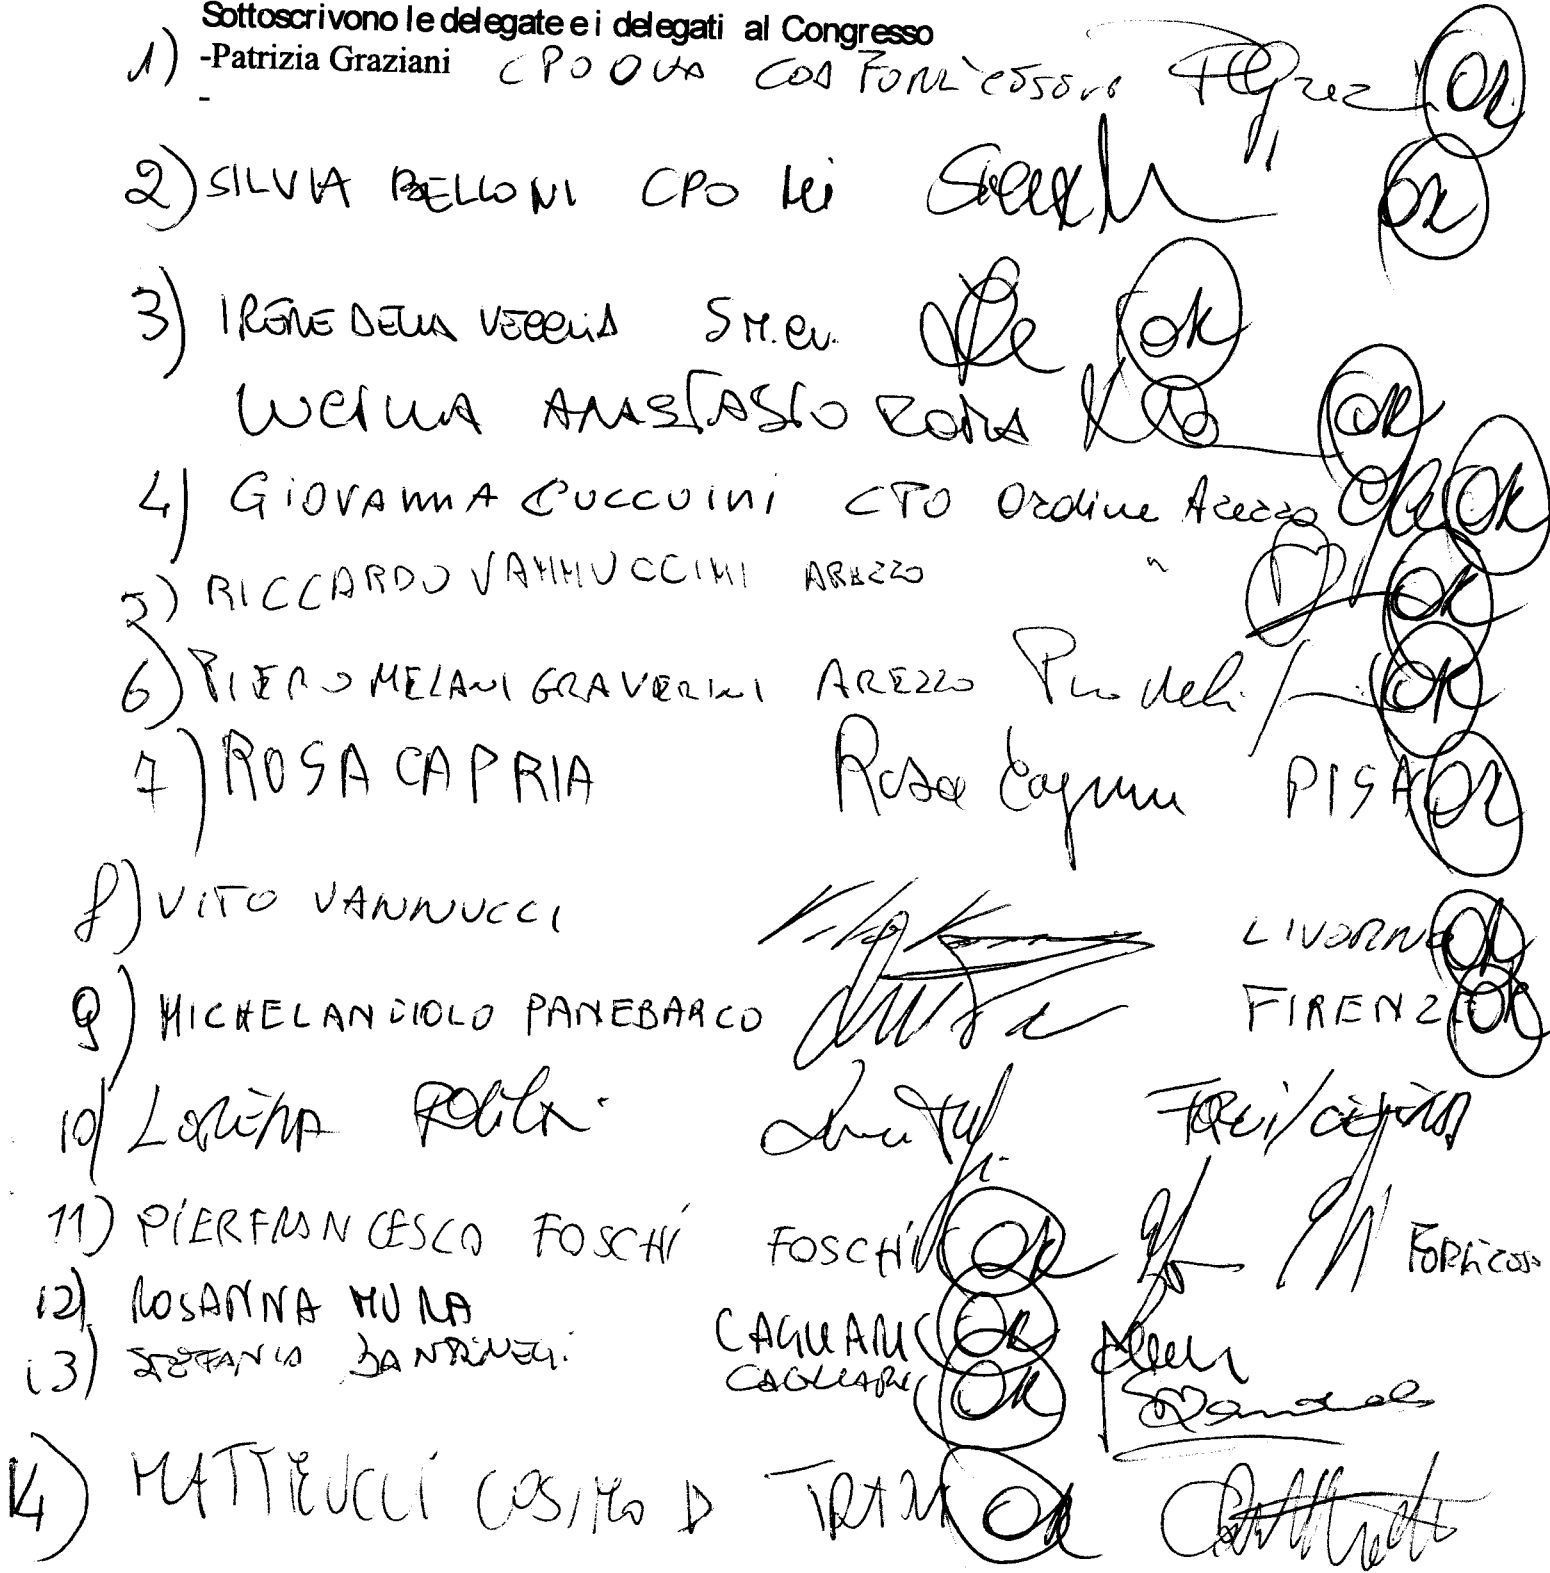 Sottoscrivono le delegate e i delegati al Congresso
1) -Patrizia Graziani CPO OUA COA OK
-
2) SILVIA BELLONI CPO OK
3) IRENE DELLA VECCHIA OK
LUCILLA ANASTASIO ROMA OK
4) GIOVANNA CTO Ordine Arezzo OK
5) RICCARDO VANNUCCINI AREZZO " OK
6) PIERO MELANI GRAVERINI AREZZO OK
7) ROSA CAPRIA Rosa Capria PISA OK
8) VITO VANNUCCI LIVORNO OK
9) MICHELANGIOLO PANEBARCO FIRENZE OK
10) LORENA
11) PIERFRANCESCO FOSCHI FOSCHI OK
12) ROSANNA MURA CAGLIARI OK
13) STEFANIA CAGLIARI OK
14) MATTEUCCI COSIMO D TRANI OK